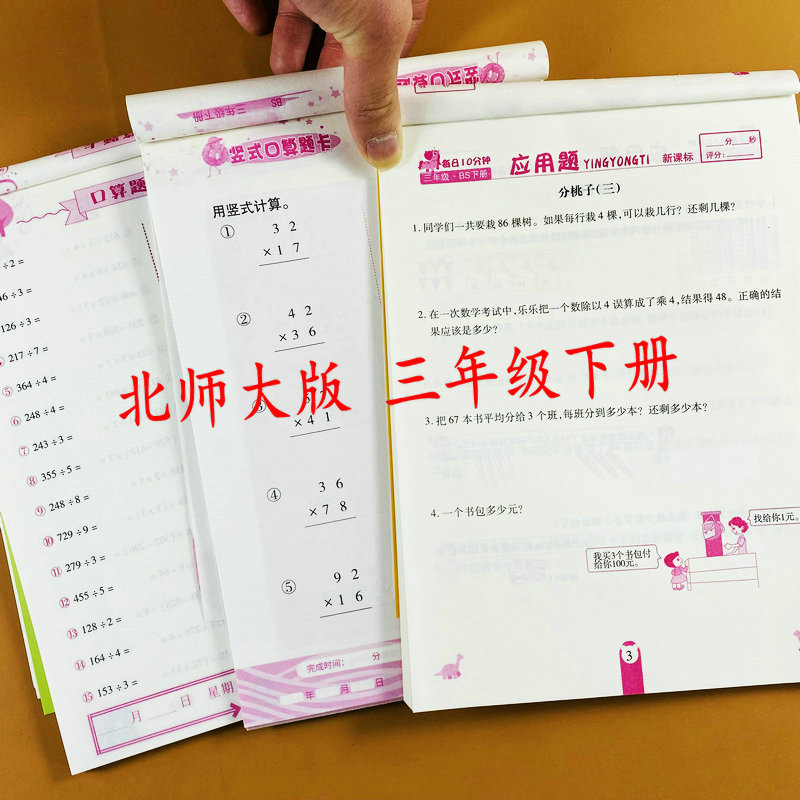 口算题
÷2 =
46 ÷3 =
126 ÷3 =
④ 217 ÷7 =
⑤ 364 ÷4 =
⑥ 248 ÷4 =
⑦ 243 ÷3 =
⑧ 355 ÷5 =
⑨ 248 ÷8 =
⑩ 729 ÷9 =
⑪ 279 ÷3 =
⑫ 455 ÷5 =
⑬ 128 ÷2 =
⑭ 164 ÷4 =
⑮ 153 ÷3 =
月 日 星期
竖式口算
BS 三年级下册
竖式口算题卡
用竖式计算。
① 3 2
× 1 7
② 4 2
× 3 6
③
× 4 1
④ 3 6
× 7 8
⑤ 9 2
× 1 6
完成时间: 分
年 月 日
每日10分钟
三年级·BS下册
应用题 YINGYONGTI 新课标
分 秒
评分:
分桃子(三)
1. 同学们一共要栽 86 棵树。如果每行栽 4 棵,可以栽几行? 还剩几棵?
2. 在一次数学考试中,乐乐把一个数除以 4 误算成了乘 4,结果得 48。正确的结
果应该是多少?
3. 把 67 本书平均分给 3 个班,每班分到多少本? 还剩多少本?
4. 一个书包多少元?
找给你1元。
我买3个书包付
给你100元。
3
北师大版 三年级下册